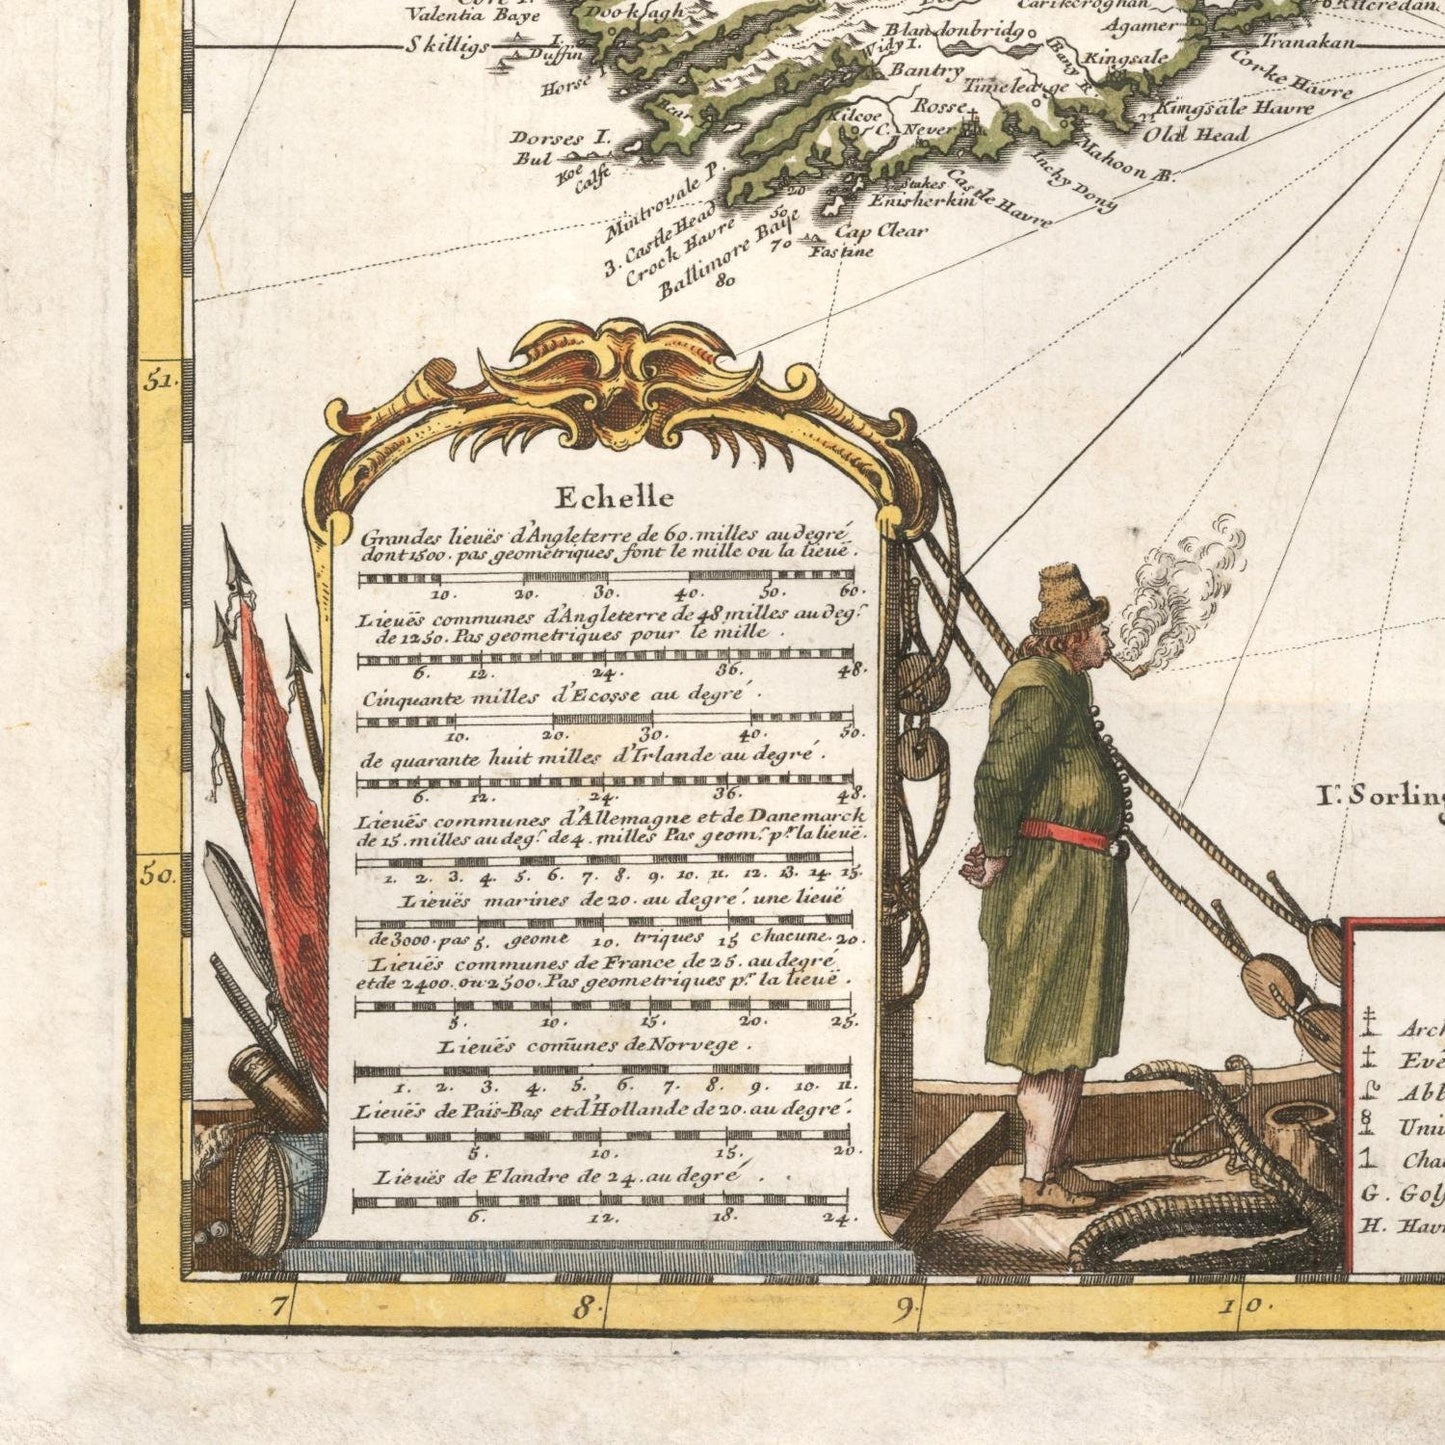 Valentia Baye
Skilligs
I.
Duffin
Horse I
Dooklagh
Bear
Dorses I.
Bul
Koe
Calft
Widy I.
Blandonbridg
Carikcroghan
Agamer
Kilcredan
Tranakan
Corke Havre
Kingsale
Bany R.
Bantry
Rosse
Kilcoe
C. Never
Kingsale Havre
Old Head
Mahoon B.
Inchy Dony
Castle Havre
Stakes
Enisherkin
Cap Clear
Fastine
20
50
70
80
Mintrovale P.
3. Castle Head
Crock Havre
Baltimore Baye
51.
50.
Echelle
Grandes lieuës d'Angleterre de 60. milles au degré
dont 1500. pas geometriques font le mille ou la lieuë.
10. 20. 30. 40. 50. 60.
Lieuës communes d'Angleterre de 48 milles au deg.^r
de 1250. Pas geometriques pour le mille.
6. 12. 24. 36. 48.
Cinquante milles d'Ecosse au degré.
10. 20. 30. 40. 50.
de quarante huit milles d'Irlande au degré.
6. 12. 24. 36. 48.
Lieuës communes d'Allemagne et de Danemarck
de 15. milles au deg.^r de 4. milles Pas geom.^s p.^r la lieuë.
1. 2. 3. 4. 5. 6. 7. 8. 9. 10. 11. 12. 13. 14. 15.
Lieuës marines de 20. au degré. une lieuë
de 3000. pas 5. geome 10. triques 15 chacune. 20.
Lieuës communes de France de 25. au degré
et de 2400. ou 2500. Pas geometriques p.^r la lieuë.
5. 10. 15. 20. 25.
Lieuës com̃unes de Norvege.
1. 2. 3. 4. 5. 6. 7. 8. 9. 10. 11.
Lieuës de Païs-Bas et d'Hollande de 20. au degré.
5. 10. 15. 20.
Lieuës de Flandre de 24. au degré.
6. 12. 18. 24.
I.^s Sorling
Arch
Evê
Abb
Uni
Cha
G. Golf
H. Hav
7 8. 9. 10.